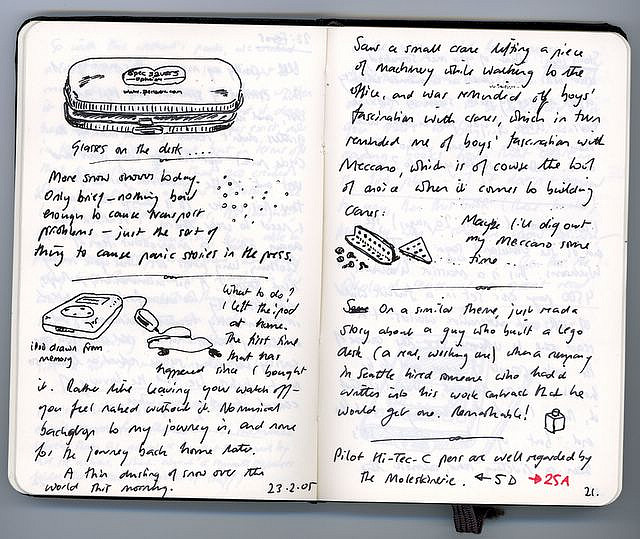 SPEC SAVERS
OPTICIANS
Glasses on the desk ....
More snow showers today.
Only brief - nothing bad
enough to cause transport
problems - just the sort of
thing to cause panic stories in the press.
What to do?
I left the ipod
at home.
The first time
that has
ipod drawn from
memory
happened since I bought
it. Rather like leaving your watch off -
you feel naked without it. No musical
background to my journey in, and none
for the journey back home later.
A thin dusting of snow over the
world this morning.
23-2-05
Saw a small crane lifting a piece
of machinery while walking to the
office, and was reminded of boys'
fascination with cranes, which in turn
reminded me of boys' fascination with
Meccano, which is of course the tool
of choice when it comes to building
cranes:
Maybe I'll dig out
my Meccano some
time....
On a similar theme, just read a
story about a guy who built a Lego
desk (a real, working one) when a company
in Seattle hired someone who had
written into his work contract that he
would get one. Remarkable!
Pilot Hi-Tec-C pens are well regarded by
the Moleskinerie. ← 5D → 25A
21.